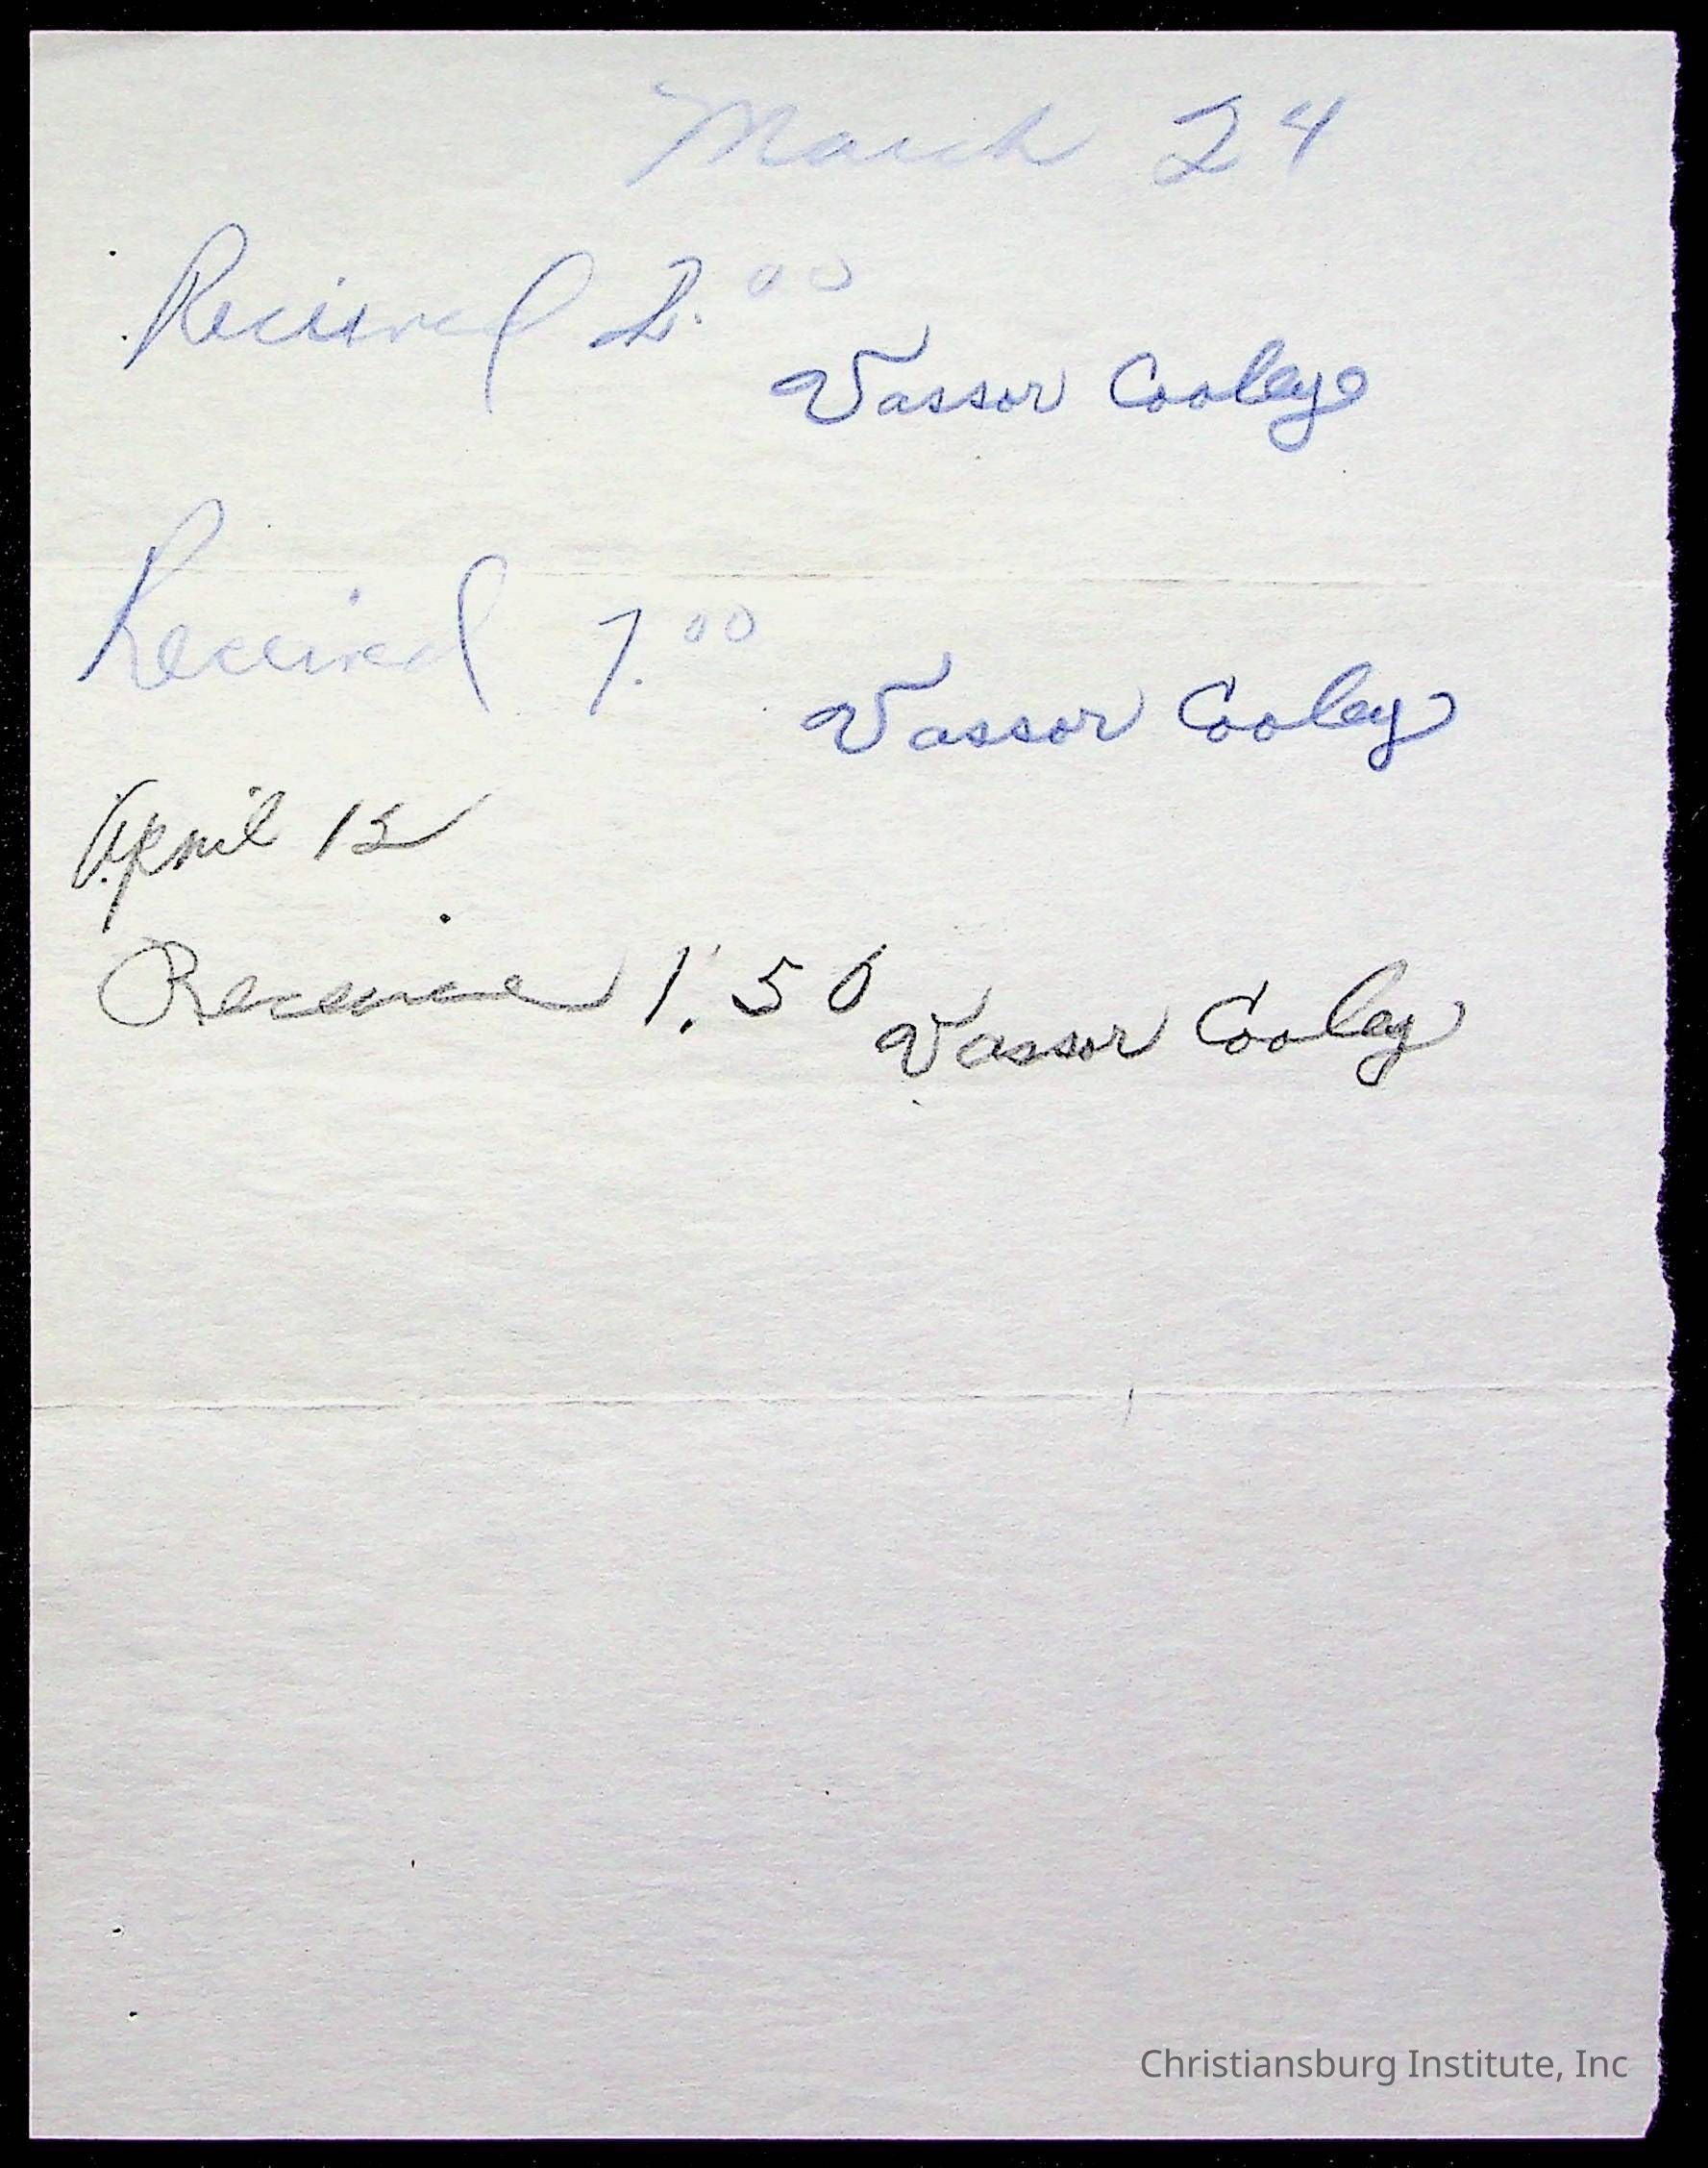 March 24
Recieved 2.00
Vassor Cooley
Received 7.00
Vassor Cooley
April 12
Receive 1.50 Vassor Cooley
Christiansburg Institute, Inc